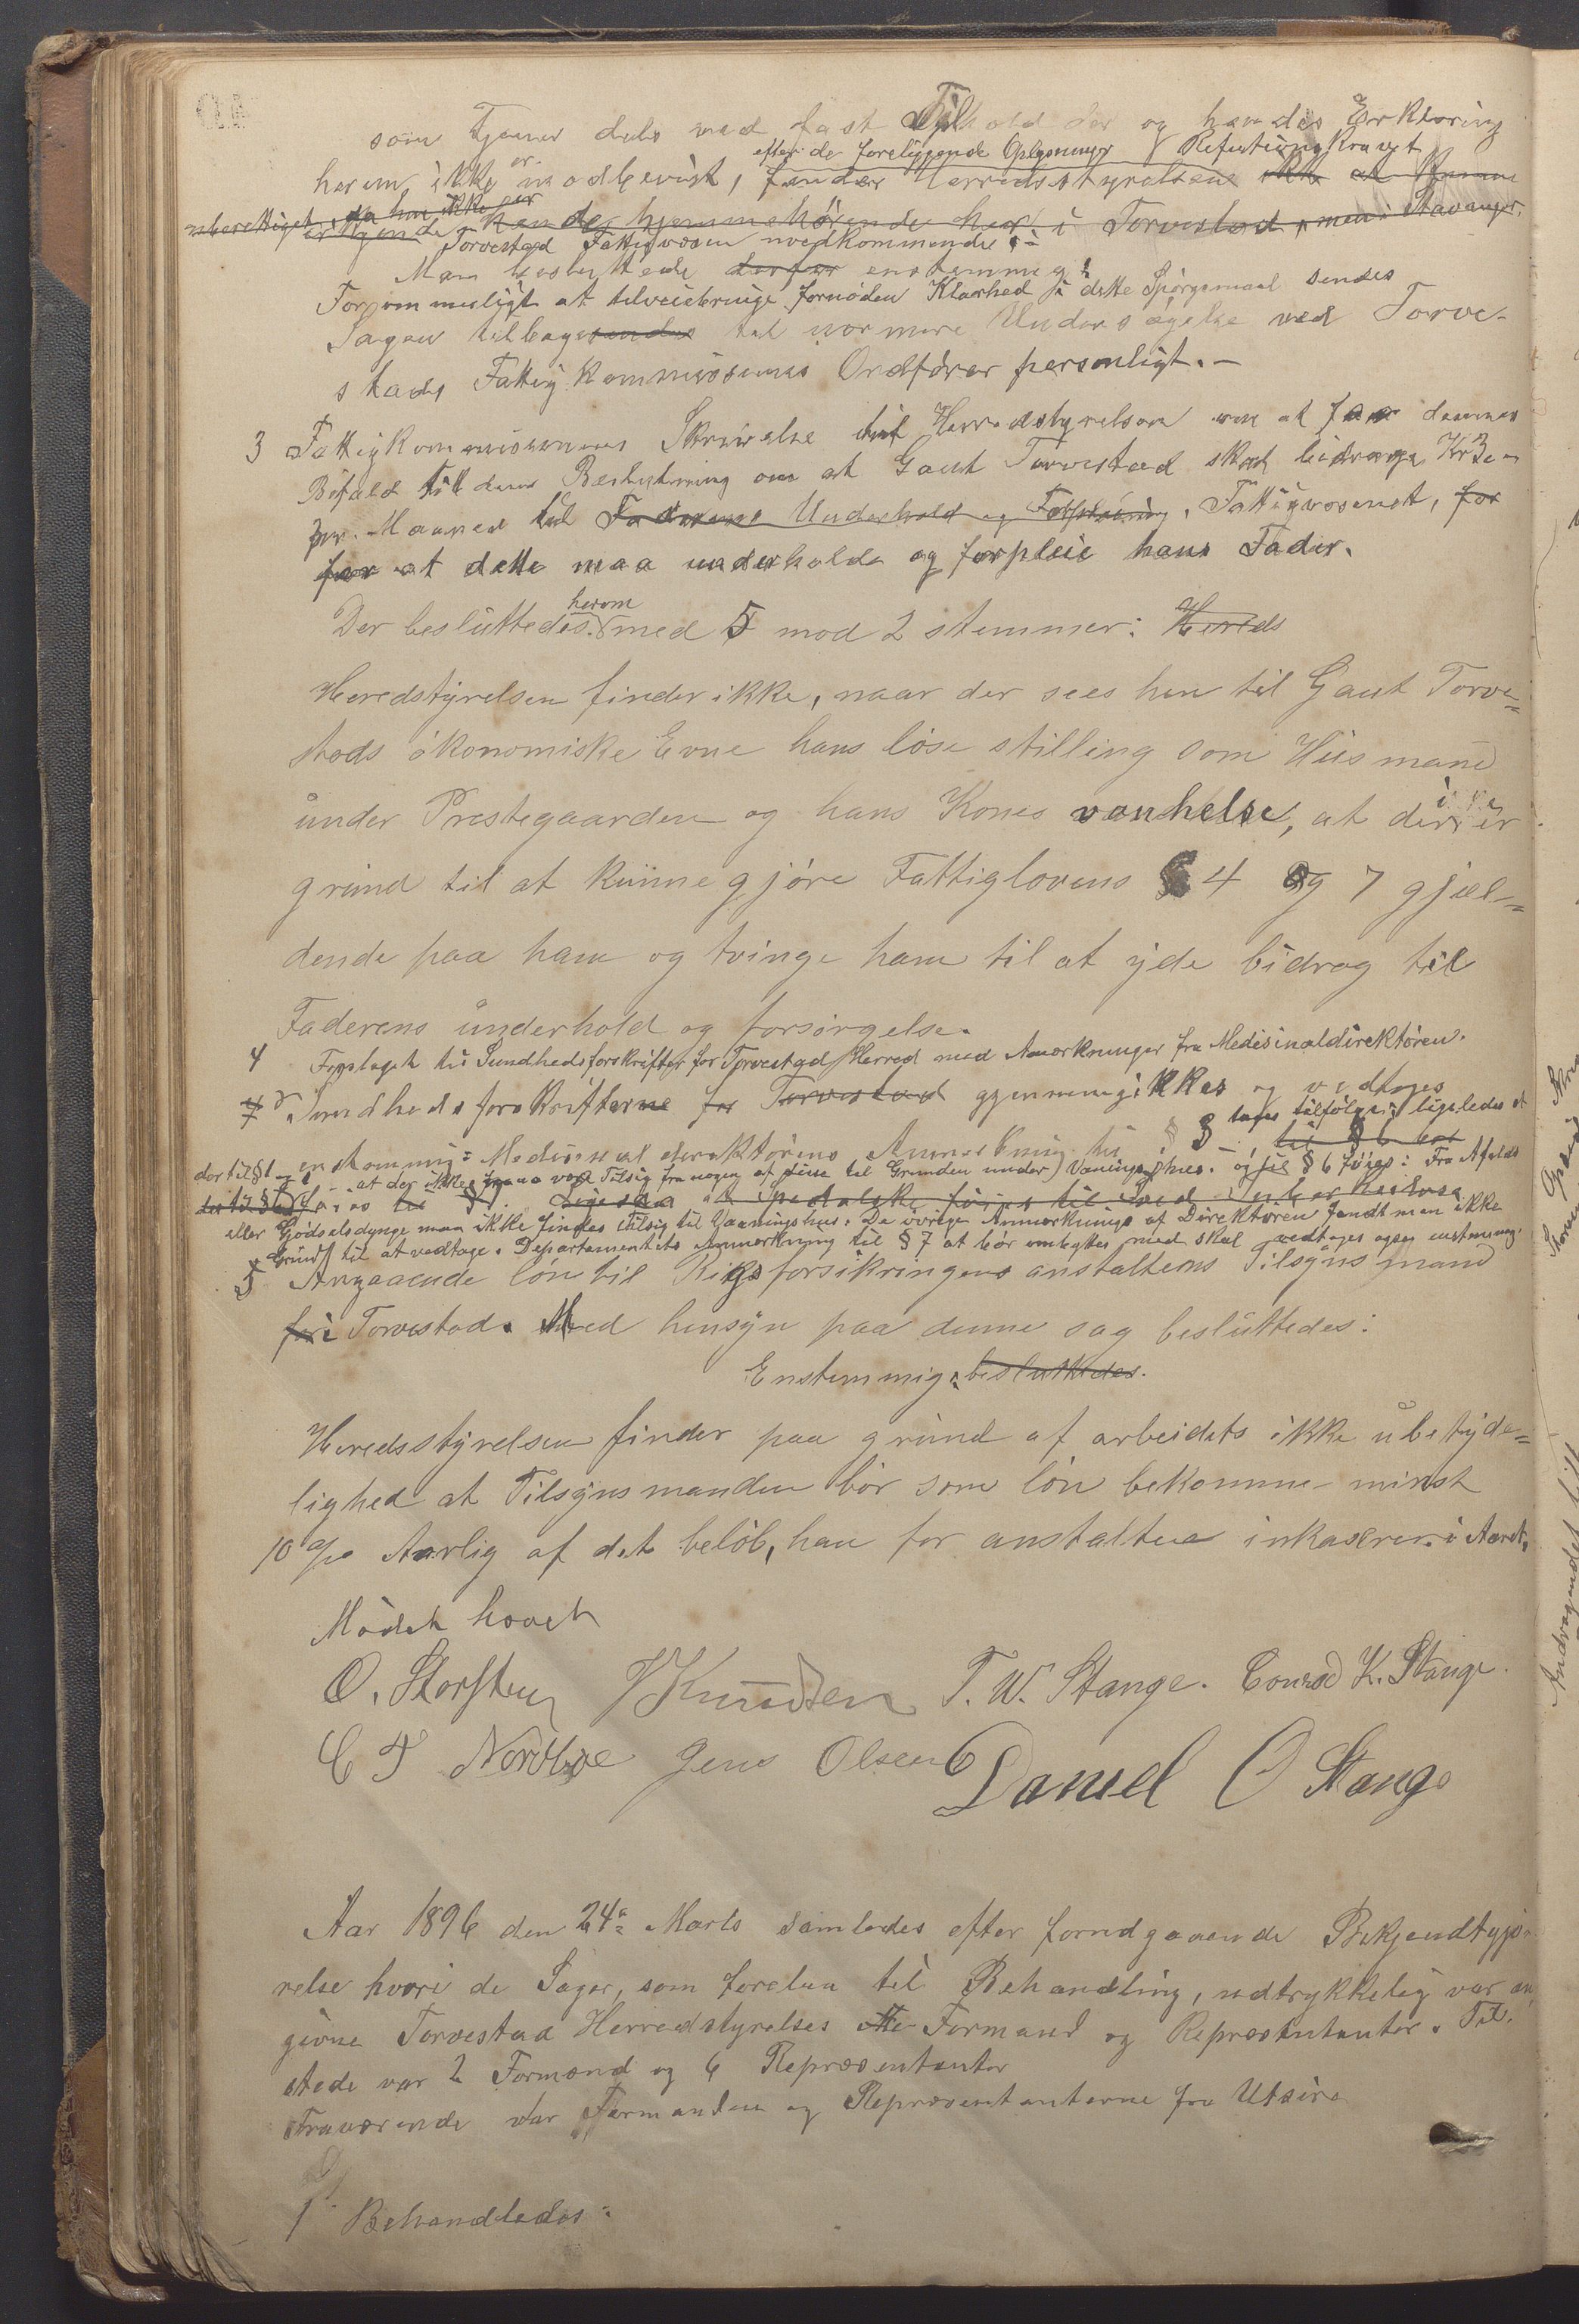 som tjener dels med fast Tilhold der og hendes Erklæring
herom, ikke er modbevist, finder Herredsstyrelsen ikke at kunne
efter de foreliggende Oplysninger Refutionskravet
uberettiget, da hun ikke er
erkjende hende hjemmehörende her i Torvestad, men i Stavanger.
Torvestad Fattigvæsen uvedkommende.
Man besluttede derfor enstemmig:
For om muligt at tilveiebringe fornöden Klarhed i dette Spörgsmaal sendes
Sagen tilbagesendes til nærmere Undersögelse ved Torve-
stads Fattigkommissions Ordförer personligt. -
3 Fattigkommissionens Skrivelse til Herredstyrelsen om at faa dennes
Bifald til dens Beslutning om at Gaut Torvestad skal bidrage Kr 3
pr. Maaned til Faderens Underhold og Forpleining, Fattigvæsenet, for
for at dette maa underholde og forpleie hans Fader.
Der besluttedes herom med 5 mod 2 stemmer: Hereds
Heredstyrelsen finder ikke, naar der sees hen til Gaut Torve-
stads ökonomiske Evne hans löse stilling som Husmand
under Prestegaarden og hans Kones vanhelse, at der er
grund til at kunne gjöre Fattiglovens § 4 og 7 gjæl-
dende paa ham og tvinge ham til at yde bidrag til
Faderens underhold og forsörgelse.
4 Forslaget til Sundhedsforskrifter for Torvestad Herred med Anmærkninger fra Medisinaldirektören.
Sundhedsforskrifterne for Torvestad gjennemgikkes og vedtages
enstemmig: Medisinaldirektörens Anmerkning til § 3 tages tilfölge; ligeledes
der til § 1 - at der ikke maa være Tilsig fra nogen af disse til Grunden under Vaaningshus. og til § 6 föies: Fra Affalds
eller Gödselsdynge maa ikke findes Tilsig til Vaaningshus. De övrige Anmerkninger af Direktören fandt man ikke
Grund til at vedtage. Departementets Anmerkning til § 7 at bör ombyttes med skal vedtages ogsaa enstemmig.
5 Angaaende lön til Rigsforsikringens anstaltens Tilsynsmand
for i Torvestad. Med hensyn paa denne sag besluttedes:
Enstemmig: besluttedes.
Heredsstyrelsen finder paa grund af arbeidets ikke ubetyde-
lighed at Tilsynsmanden bör som lön bekomme minst
10 % Aarlig af det belöb, han for anstalten inkaserer i Aaret.
Mödet hævet
O. Storsten J Knudsen T. W. Stange. Conrad K. Stange.
C T Nordboe Jens Olsen Daniel O Stange
Aar 1896 den 24de Marts samledes efter forudgaaende Bekjendtgjö-
relse hvori de Sager, som forelaa til Behandling, udtrykkelig var an
givne Torvestad Herredstyrelses Formænd og Repræsentanter. Til-
stede var 2 Formænd og 6 Repræsentanter
Fraværende var Formanden og Repræsentanterne fra Utsire
1 Behandledes: